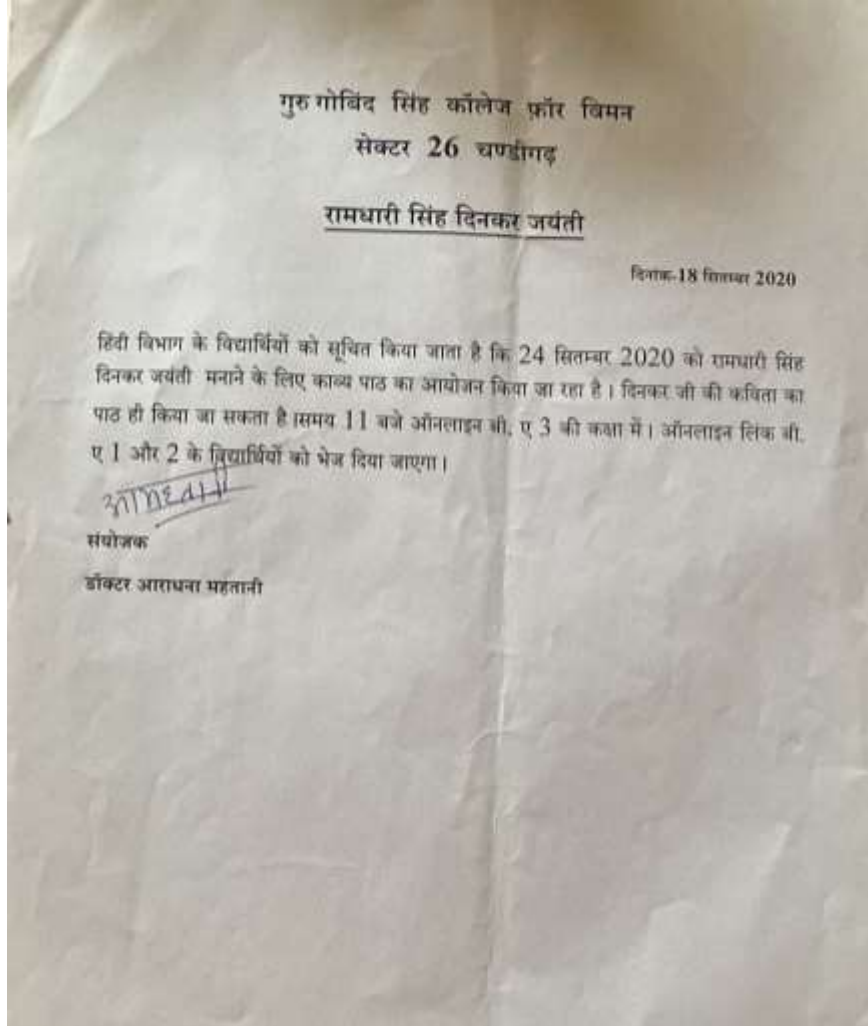 गुरु गोबिंद सिंह कॉलेज फ़ॉर विमन
सेक्टर 26 चण्डीगढ़
रामधारी सिंह दिनकर जयंती
दिनांक-18 सितम्बर 2020
हिंदी विभाग के विद्यार्थियों को सूचित किया जाता है कि 24 सितम्बर 2020 को रामधारी सिंह
दिनकर जयंती मनाने के लिए काव्य पाठ का आयोजन किया जा रहा है। दिनकर जी की कविता का
पाठ ही किया जा सकता है।समय 11 बजे ऑनलाइन बी. ए 3 की कक्षा में। ऑनलाइन लिंक बी.
ए 1 और 2 के विद्यार्थियों को भेज दिया जाएगा।
संयोजक
डॉक्टर आराधना महतानी